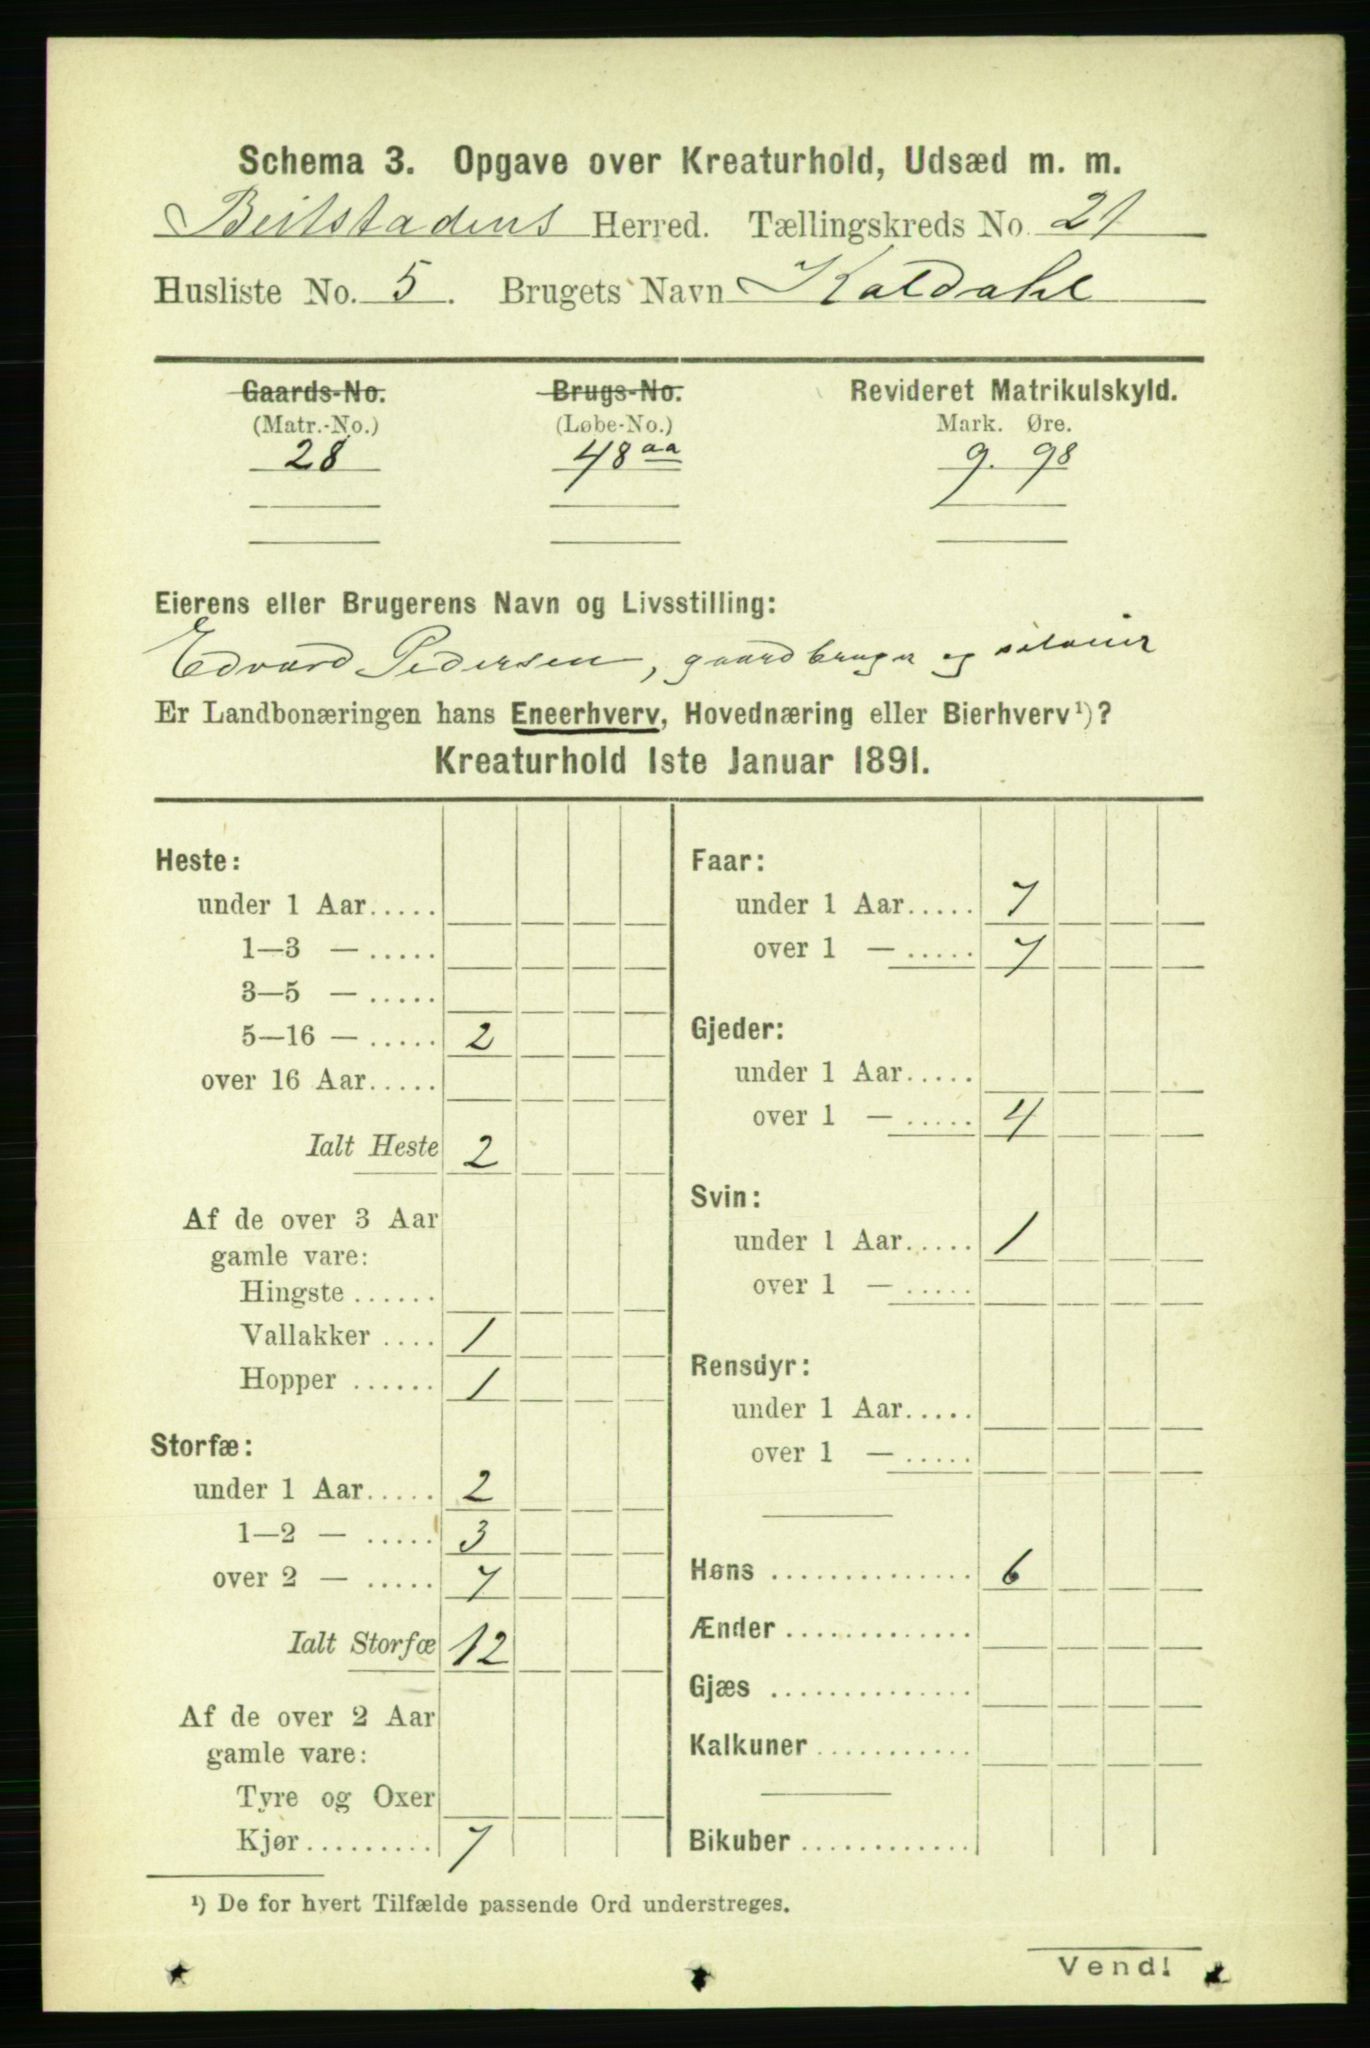 Schema 3. Opgave over Kreaturhold, Udsæd m. m.
Beitstadens Herred. Tællingskreds No. 21
Husliste No. 5. Brugets Navn Kaldahl
Gaards-No. Brugs-No. Revideret Matrikulskyld.
(Matr.-No.) (Løbe-No.) Mark. Øre.
28 48 aa 9. 98
Eierens eller Brugerens Navn og Livsstilling:
Edvard Pedersen, gaardbruger og selveier
Er Landbonæringen hans Eneerhverv, Hovednæring eller Bierhverv¹)?
Kreaturhold 1ste Januar 1891.
Heste:
under 1 Aar.....
1—3 — .....
3—5 — .....
5—16 — ..... 2
over 16 Aar.....
Ialt Heste 2
Af de over 3 Aar
gamle vare:
Hingste ......
Vallakker .... 1
Hopper ...... 1
Storfæ:
under 1 Aar..... 2
1—2 — ..... 3
over 2 — ..... 7
Ialt Storfæ 12
Af de over 2 Aar
gamle vare:
Tyre og Oxer
Kjør......... 7
Faar:
under 1 Aar..... 7
over 1 — ..... 7
Gjeder:
under 1 Aar.....
over 1 — ..... 4
Svin:
under 1 Aar..... 1
over 1 — .....
Rensdyr:
under 1 Aar.....
over 1 — .....
Høns .............. 6
Ænder .............
Gjæs ..............
Kalkuner ...........
Bikuber ............
¹) De for hvert Tilfælde passende Ord understreges.
Vend!